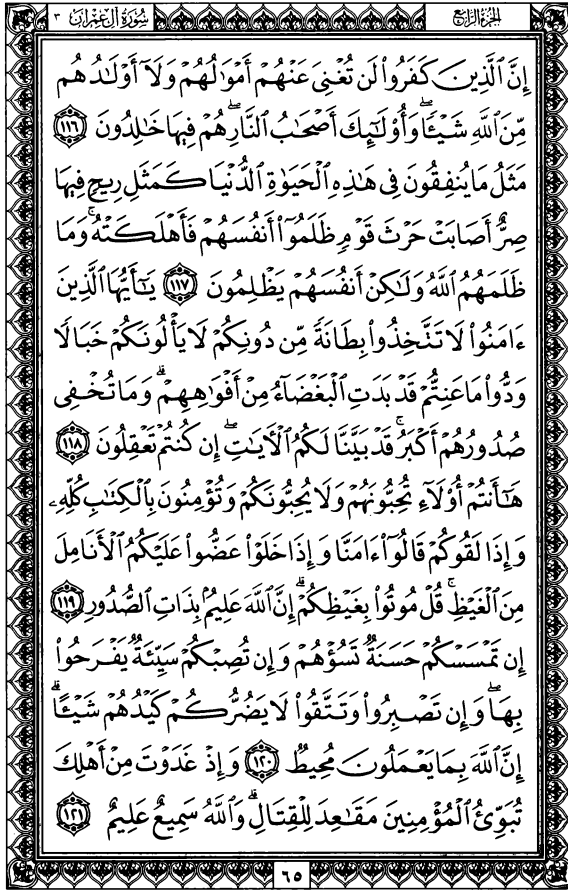 الجزء الرابع
سورة آل عمران ٣
إِنَّ ٱلَّذِينَ كَفَرُوا۟ لَن تُغْنِىَ عَنْهُمْ أَمْوَٰلُهُمْ وَلَآ أَوْلَـٰدُهُم
مِّنَ ٱللَّهِ شَيْـًٔا ۖ وَأُو۟لَـٰٓئِكَ أَصْحَـٰبُ ٱلنَّارِ ۖ هُمْ فِيهَا خَـٰلِدُونَ ١١٦
مَثَلُ مَا يُنفِقُونَ فِى هَـٰذِهِ ٱلْحَيَوٰةِ ٱلدُّنْيَا كَمَثَلِ رِيحٍ فِيهَا
صِرٌّ أَصَابَتْ حَرْثَ قَوْمٍ ظَلَمُوٓا۟ أَنفُسَهُمْ فَأَهْلَكَتْهُ ۚ وَمَا
ظَلَمَهُمُ ٱللَّهُ وَلَـٰكِنْ أَنفُسَهُمْ يَظْلِمُونَ ١١٧ يَـٰٓأَيُّهَا ٱلَّذِينَ
ءَامَنُوا۟ لَا تَتَّخِذُوا۟ بِطَانَةً مِّن دُونِكُمْ لَا يَأْلُونَكُمْ خَبَالًا
وَدُّوا۟ مَا عَنِتُّمْ قَدْ بَدَتِ ٱلْبَغْضَآءُ مِنْ أَفْوَٰهِهِمْ ۗ وَمَا تُخْفِى
صُدُورُهُمْ أَكْبَرُ ۚ قَدْ بَيَّنَّا لَكُمُ ٱلْـَٔايَـٰتِ ۖ إِن كُنتُمْ تَعْقِلُونَ ١١٨
هَـٰٓأَنتُمْ أُو۟لَآءِ تُحِبُّونَهُمْ وَلَا يُحِبُّونَكُمْ وَتُؤْمِنُونَ بِٱلْكِتَـٰبِ كُلِّهِۦ
وَإِذَا لَقُوكُمْ قَالُوٓا۟ ءَامَنَّا وَإِذَا خَلَوْا۟ عَضُّوا۟ عَلَيْكُمُ ٱلْأَنَامِلَ
مِنَ ٱلْغَيْظِ ۚ قُلْ مُوتُوا۟ بِغَيْظِكُمْ ۗ إِنَّ ٱللَّهَ عَلِيمٌۢ بِذَاتِ ٱلصُّدُورِ ١١٩
إِن تَمْسَسْكُمْ حَسَنَةٌ تَسُؤْهُمْ وَإِن تُصِبْكُمْ سَيِّئَةٌ يَفْرَحُوا۟
بِهَا ۖ وَإِن تَصْبِرُوا۟ وَتَتَّقُوا۟ لَا يَضُرُّكُمْ كَيْدُهُمْ شَيْـًٔا ۗ
إِنَّ ٱللَّهَ بِمَا يَعْمَلُونَ مُحِيطٌ ١٢٠ وَإِذْ غَدَوْتَ مِنْ أَهْلِكَ
تُبَوِّئُ ٱلْمُؤْمِنِينَ مَقَـٰعِدَ لِلْقِتَالِ ۗ وَٱللَّهُ سَمِيعٌ عَلِيمٌ ١٢١
٦٥